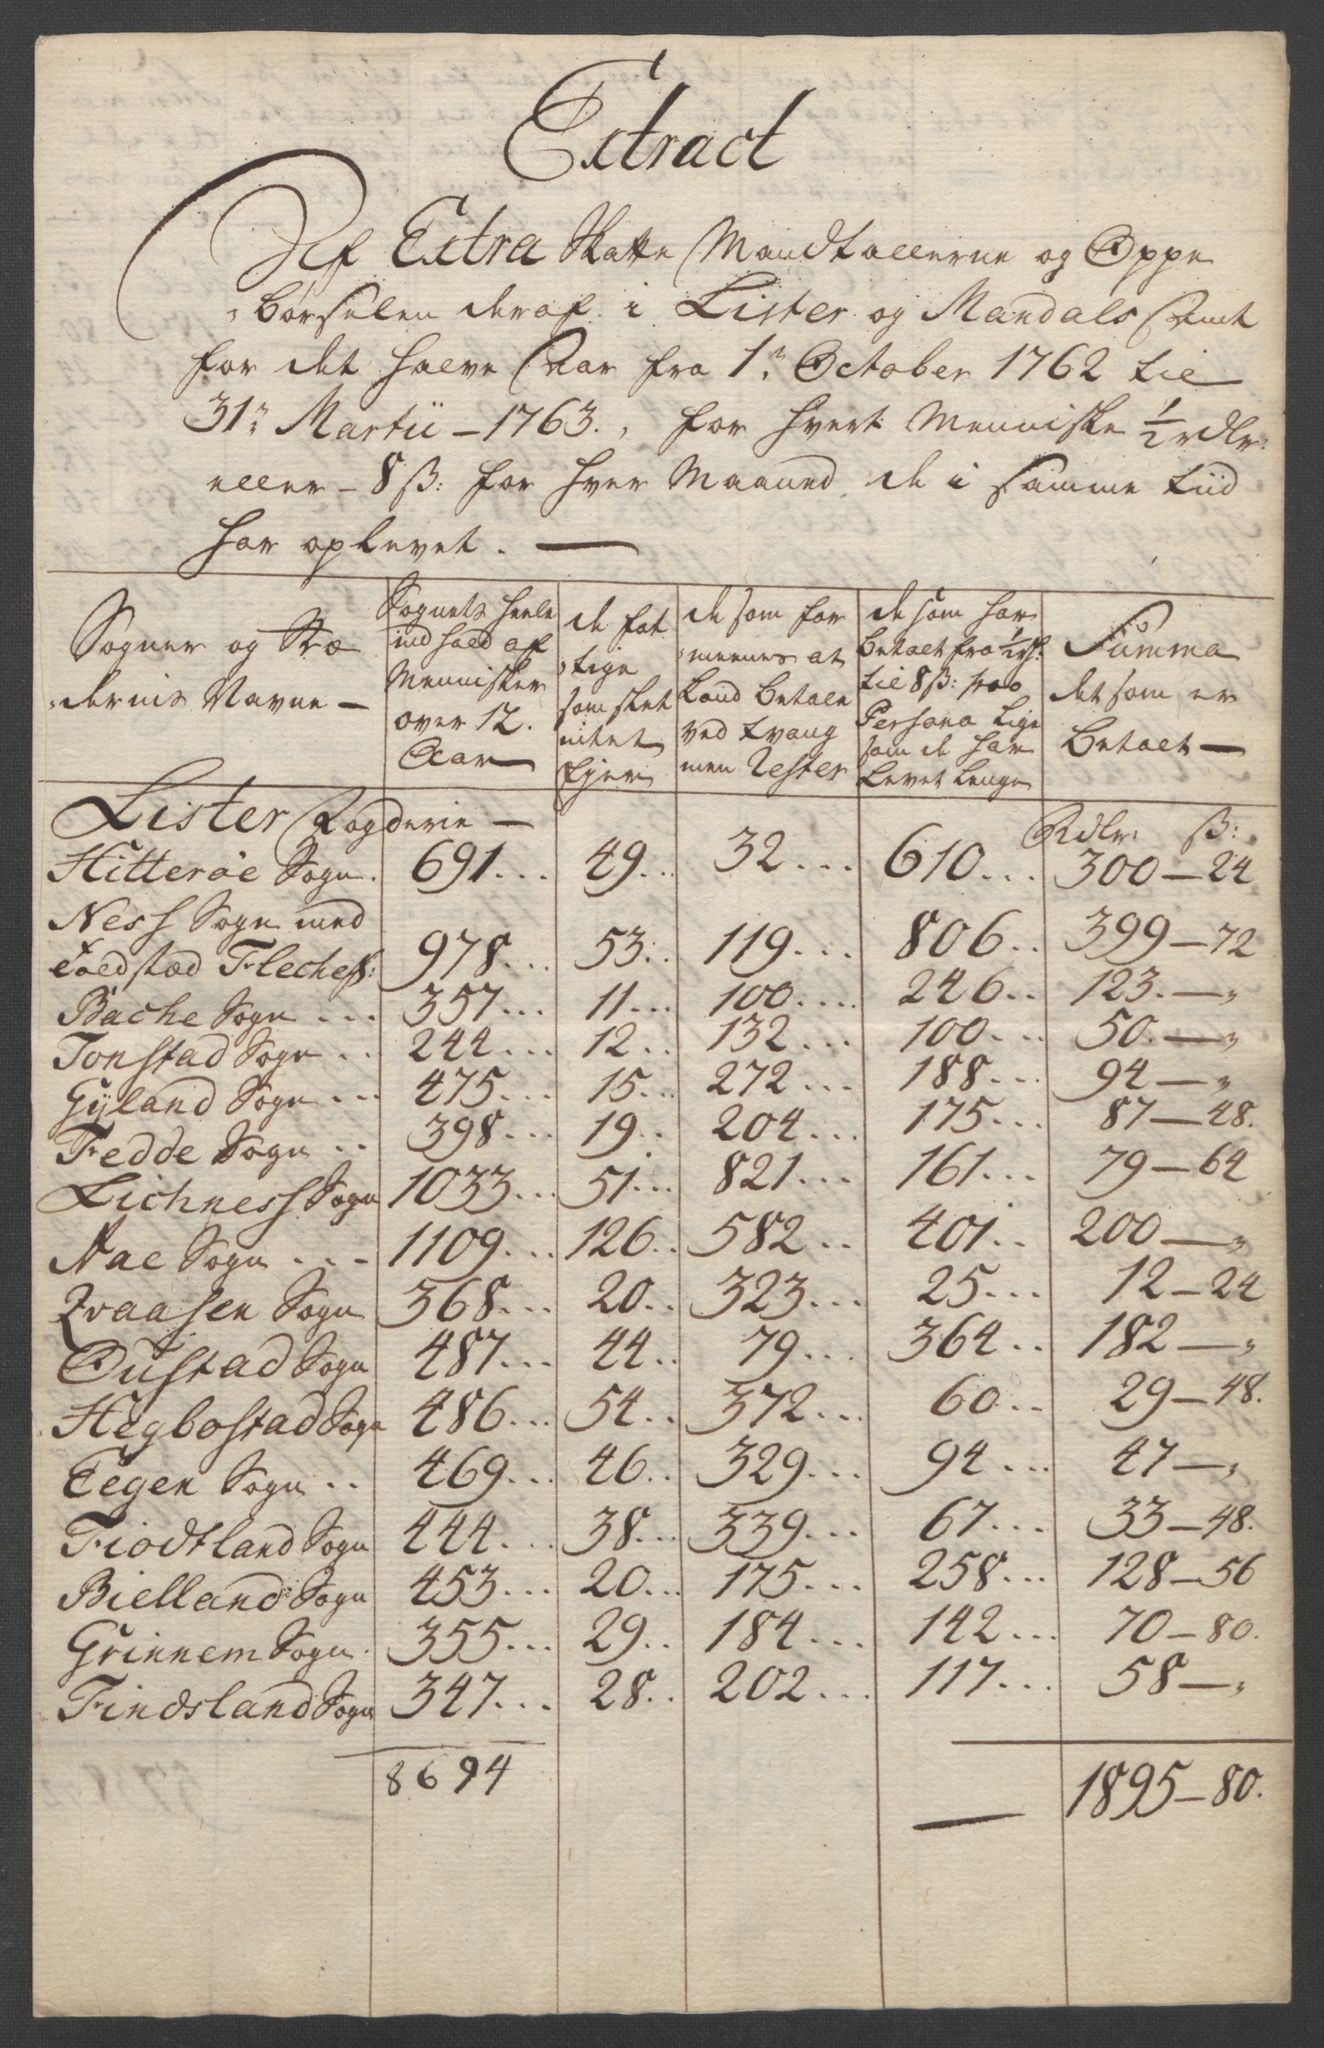 Extract
Af Extra Skatte Mandtallerne og Oppe
„børselen deraf i Lister og Mandals Amt
for det halve Aar fra 1n October 1762 til
31n Martii – 1763., for hvert Menniske 1/2 rdlr:
eller – 8 ß: for hver Maaned de i samme tiid
har oplevet. —
Sogner og Stæ
„dernis Navne —
Sognets heele
indhold af
Mennisker
over 12.
Aar —
de fat
„tige
som slet
intet
Ejer
de som for
„meenes at
kand betale
ved tvang
men Rester
de som har
betalt fra 1/2 rd:
til 8 ß: pro
Persona lige
som de har
levet lenge
Summa
det som er
betalt —
Lister Fogderie — Rdlr: ß:
Hitterøe Sogn. 691... 49... 32... 610... 300 — 24
Ness Sogn med
Ladstæd Flechef: 978... 53.. 119... 806.. 399 — 72
Bache Sogn ... 357... 11... 100.... 246.. 123. — „
Tonstad Sogn .. 244... 12.. 132... 100... 50. — „
Gÿland Sogn ... 475... 15... 272... 188... 94 — „
Fedde Sogn .. 398... 19.. 204... 175... 87 — 48.
Lichness Sogn 1033... 51... 821... 161... 79 — 64
Nae Sogn ... 1109... 126.. 582.. 401.. 200 — „
Qvaasen Sogn 368... 20.. 323... 25... 12 — 24
Oustad Sogn 487... 44.. 79... 364.. 182 — „
Hegbostad Sogn 486... 54.. 372... 60.. 29 — 48.
Eegen Sogn .. 469... 46.. 329... 94... 47 — „
Fiodtland Sogn 444... 38... 339... 67... 33 — 48.
Bielland Sogn 453... 20... 175... 258... 128 — 56
Grinnem Sogn. 355... 29.. 184... 142... 70 — 80.
Findsland Sogn 347... 28.. 202... 117... 58 — „
8694 — 1895 — 80.